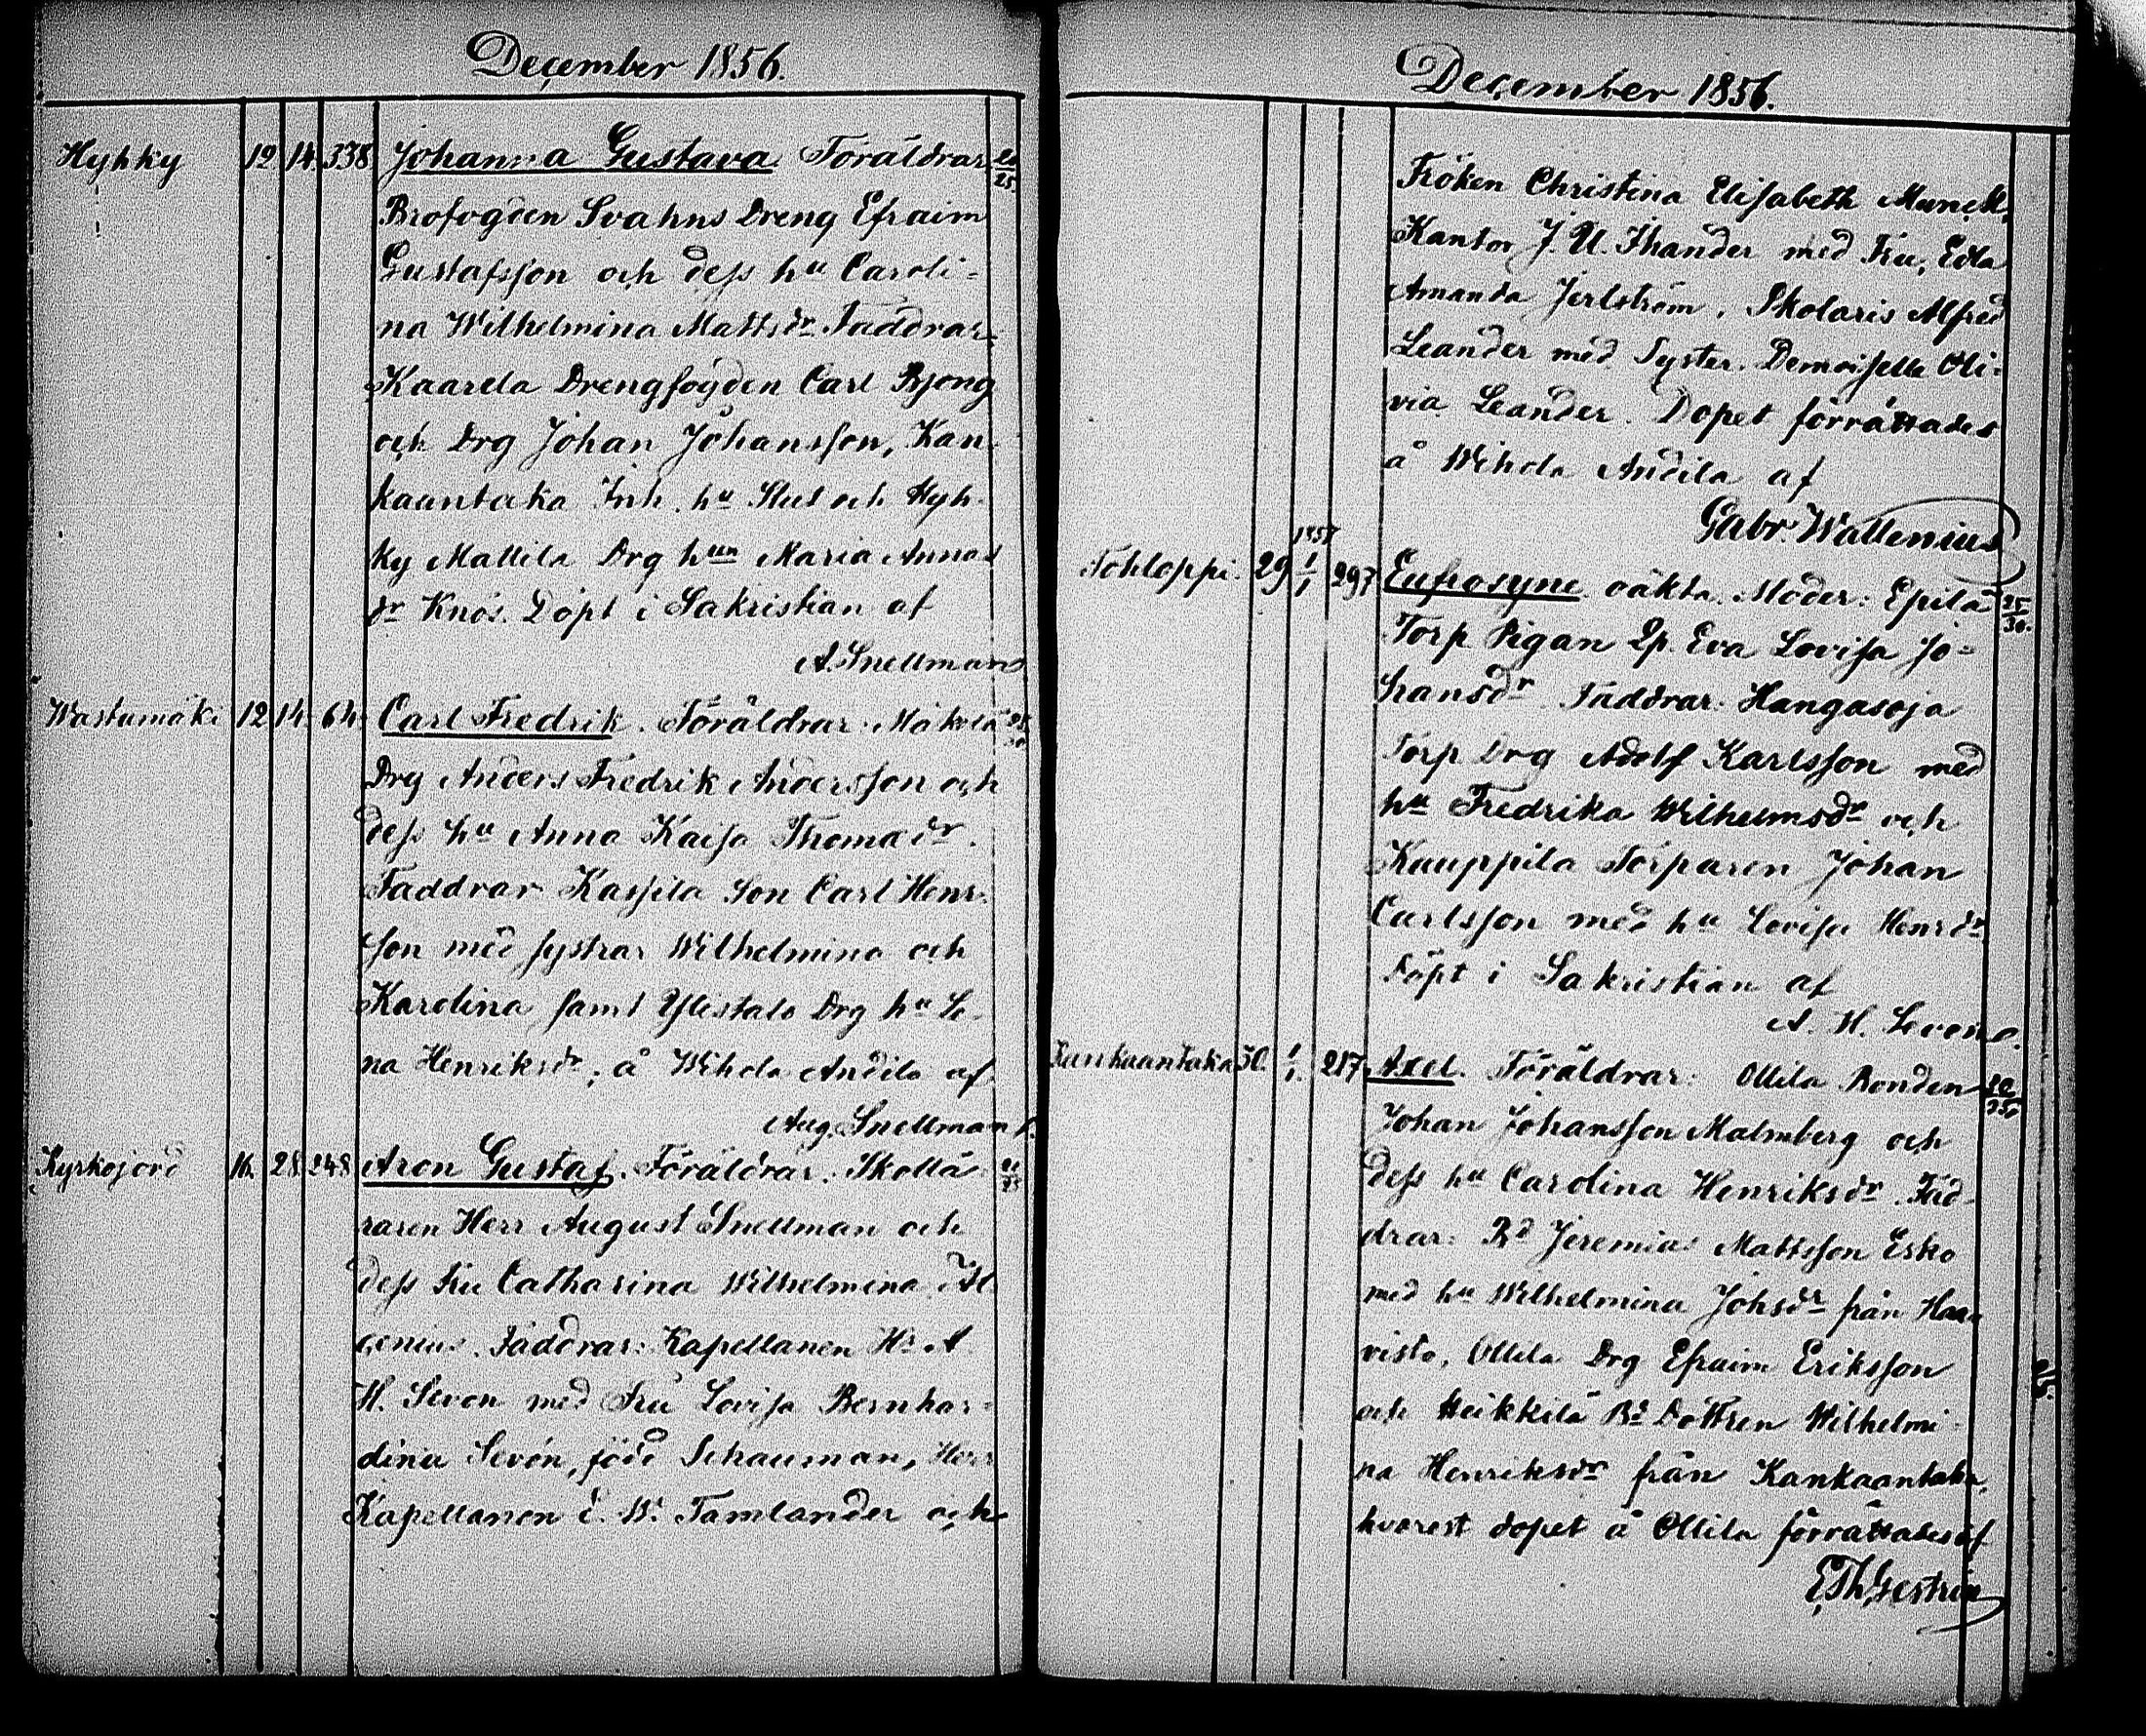 December 1856.
Hyhky 12 14. 338 Johanna Gustava. Föräldrar 20/25
Brofogden Svahns Dreng Efraim
Gustafsson och dess hu Caroli=
na Wilhelmina Mattsdr. Faddrar:
Kaarela Drengfogden Carl Bjong
och Drg Johan Johansson, Kan
kaantaka Inh. hu Slut och Hyh-
ky Mattila Drg hun Maria Annas
dr Knös. Döpt i Sakristian af
A. Snellman
Wastamäki 12 14. 64. Carl Fredrik. Föräldrar: Mäkelä
Drg Anders Fredrik Andersson och
dess hu Anna Kaisa Thomadr.
Faddrar Kassila Son Carl Henr.
son med systrar Wilhelmina och
Karolina samt Ylistalo Drg hu Le-
na Henriksdr; å Wihola Andila af
Aug. Snellman
Kyrkojord 16. 28. 248 Aron Gustaf. Föräldrar: Skollä
raren Herr August Snellman och
dess Fru Catharina Wilhelmina
Faddrar: Kapellanen Hr A.
H. Sevon med Fru Lovisa Bernhar=
dina Sevón, född Schauman, Herr
Kapellanen E. W. Tamlander och
December 1856.
Fröken Christina Elisabeth Munck,
Kantor J. U. Thander med Fru, Edla
Amanda Jerlström, Skolaris Alfred
Leander med Syster. Demoiselle Oli=
via Leander. Dopet förrättades
å Wihola Andila af
Gabr. Wallenius
1857
Tohloppi. 29 1/1 297 Eufrosyne oäkta. Moder: Epilä 25/30.
Torp Pigan Lp. Eva Lovisa Jo=
hansdr. Faddrar: Hangasoja
Torp Drg Adolf Karlsson med
hu Fredrika Wilhelmsdr och
Kauppila Torparen Johan
Carlsson med hu Lovisa Henrdr.
Döpt i Sakristian af
A. H. Sevon
Kankaantaka 30. 1/1. 217 Axel. Föräldrar: Ollila Bonden
Johan Johansson Malmberg och
dess hu Carolina Henriksdr. Fad-
drar: Bd Jeremias Mattsson Esko
med hu Wilhelmina Johsdr från Haa-
visto, Ollila Drg Efraim Eriksson
och Heikkilä Bd Dottren Wilhelmi-
na Henriksdr från Kankaantaka,
hvarest dopet å Ollila förrättades af
E. Th. Gestrin